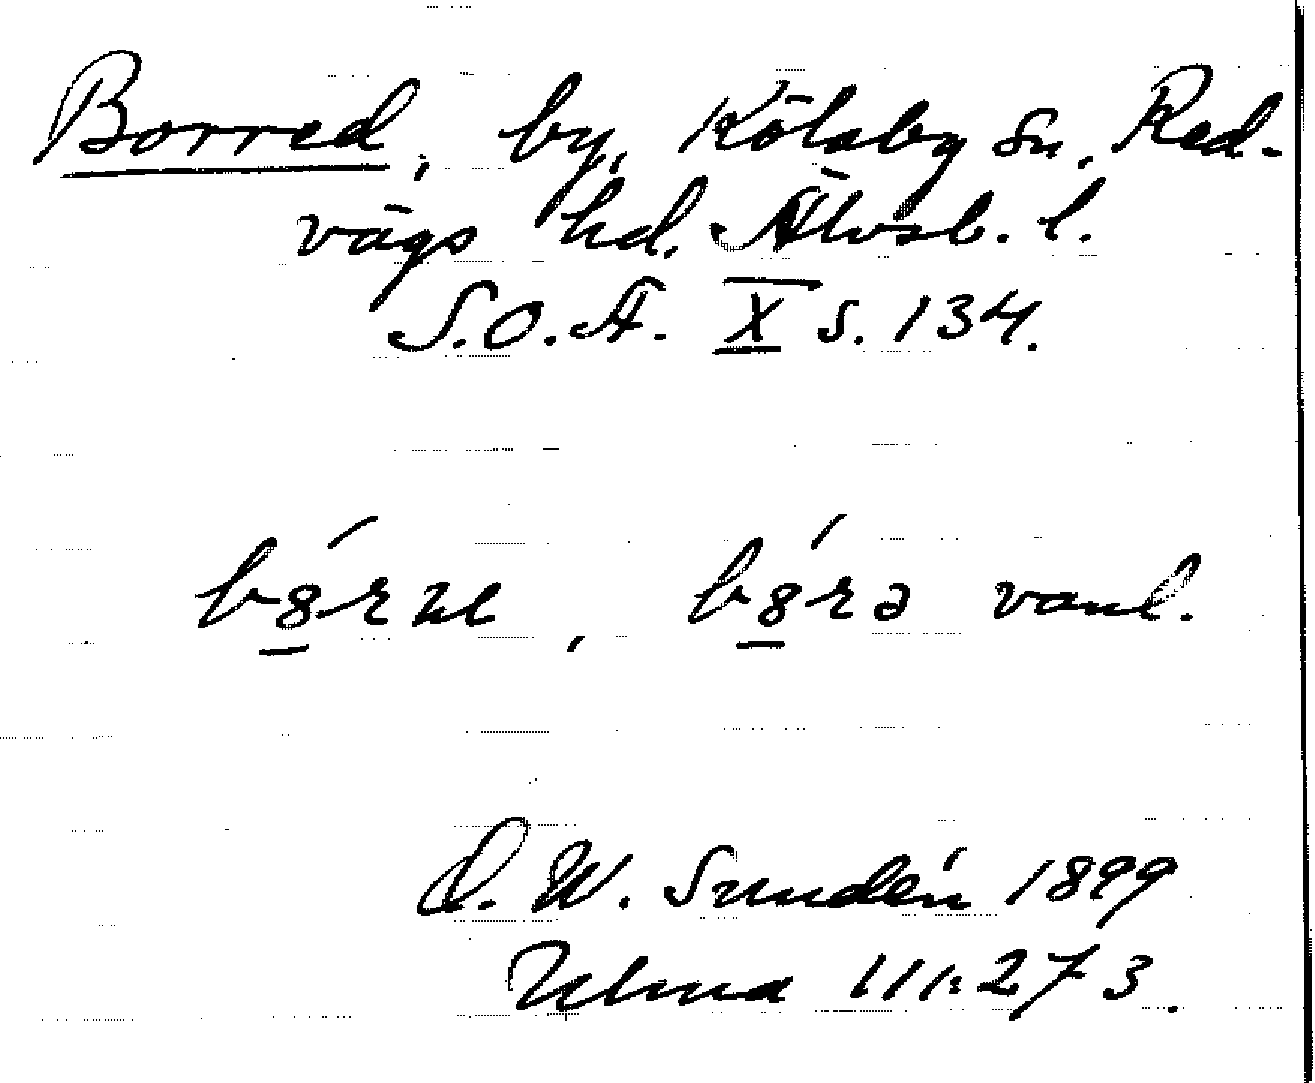 Borred, by, Kölaby sn, Red-
vägs hd. Älvsb. l.
S.O.Ä. X s. 134.
bȣ́rɐe, bȣ́rə vanl.
D. W. Sundén 1899
Ulma 111:273.